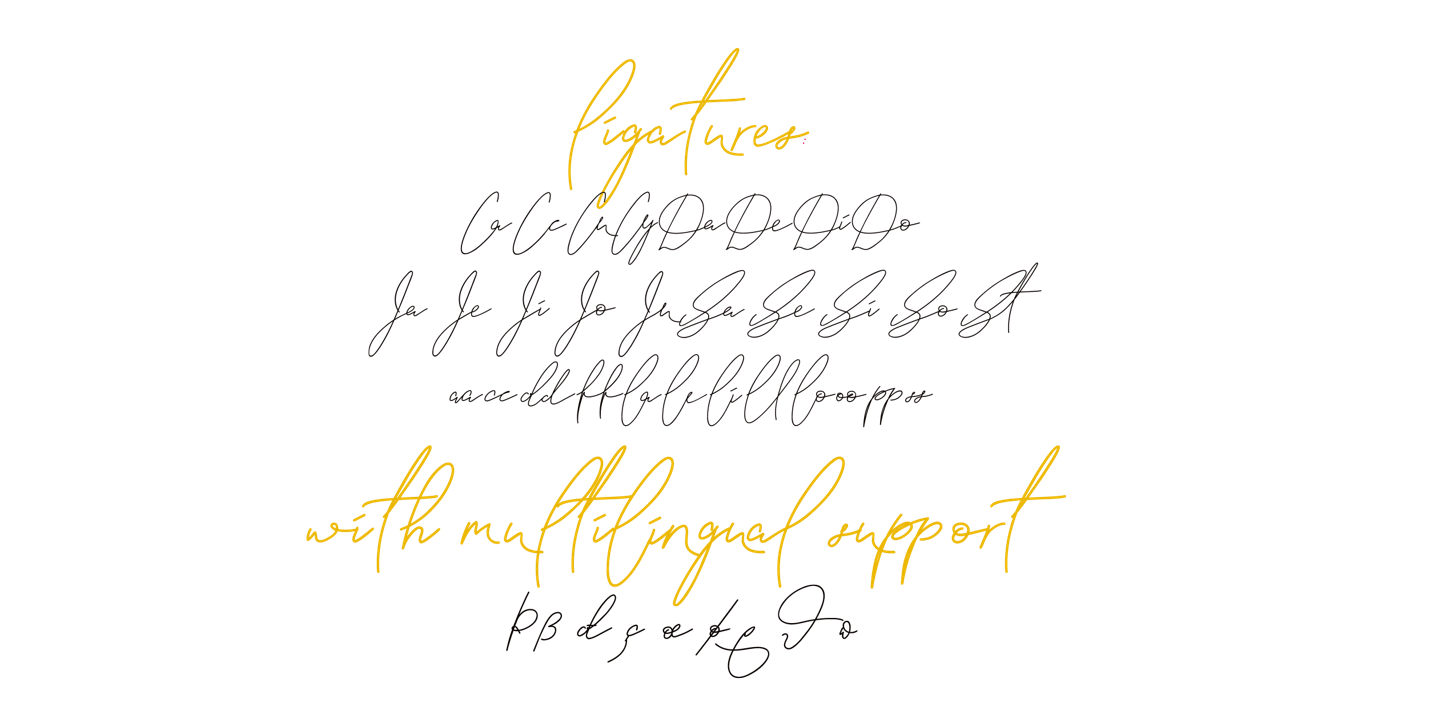 ligatures:
Ca Cc Cu Cy Da De Di Do
Ja Je Ji Jo Ju Sa Se Si So St
aa cc dd ff la le li ll lo oo pp ss
with multilingual support
þ ß đ ç æ ø